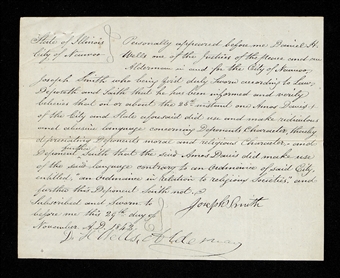 State of Illinois
City of Nauvoo
Personally appeared before me Daniel H.
Wells one of the Justices of the peace and one
Alderman in and for the City of Nauvoo,
Joseph Smith who being first duly sworn according to law,
Deposeth and Saith that he has been informed and verily
believes that on or about the 26th instant one Amos Davis
of the City and State aforesaid did use and make ridiculous
and abusive language concerning Deponents Character, thereby
depreciating Deponents moral and religious Character, and
Deponent further Saith that the said Amos Davis did make use
of the said language contrary to an ordinance of said City
entitled, "an Ordinance in relation to religious Societies," and
further this Deponent Saith not.
Joseph Smith
Subscribed and Sworn to
before me this 29th day of
November A.D. 1842
D. H. Wells Alderman